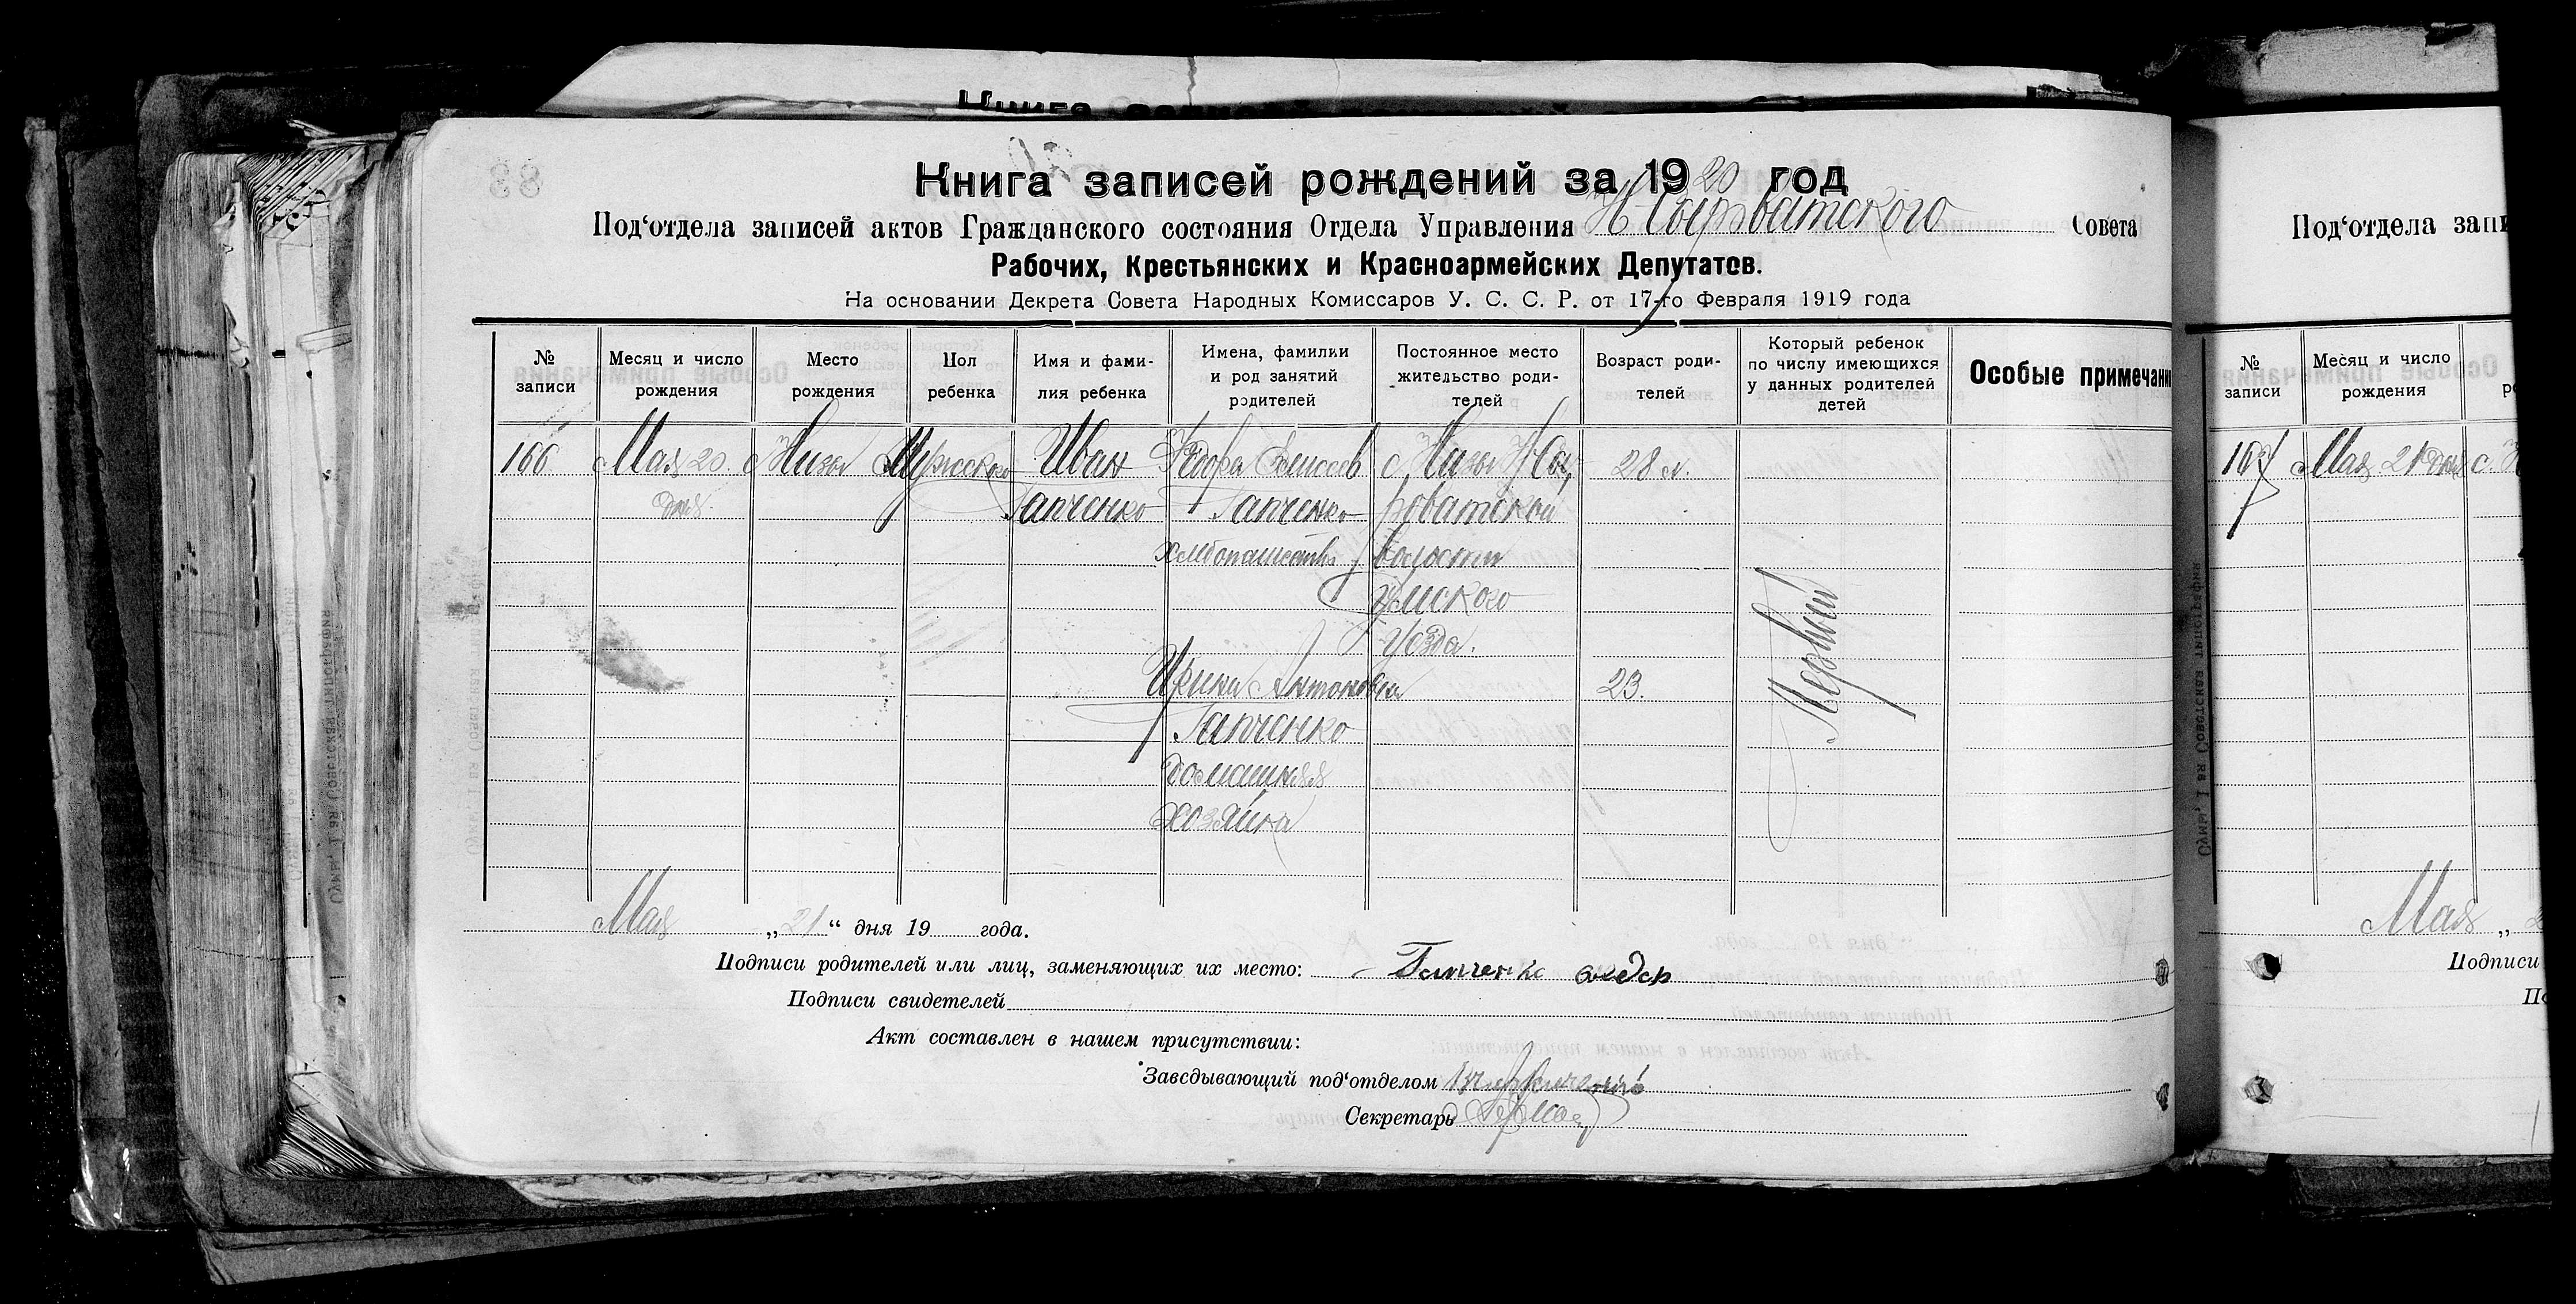 Книга записей рождений за 1920 год
Под‘отдела записей актов Гражданского состояния Отдела Управления Н Сыроватского Совета
Рабочих, Крестьянских и Красноармейских Депутатов.
На основании Декрета Совета Народных Комиссаров У. С. С. Р. от 17-го Февраля 1919 года
№ записи
Месяц и число рождения
Место рождения
Пол ребенка
Имя и фами-
лия ребенка
Имена, фамилии
и род занятий
родителей
Постоянное место
жительство роди-
телей
Возраст роди-
телей
Который ребенок
по числу имеющихся
у данных родителей
детей
Особые примечани
166
Мая 20
дня
с Низы
Мужского
Иван
Гапченко
Федор Елисеев
Гапченко
хлебопашество
с Низы Н Сы
роватской
волости
Сумского
Уезда.
28 л.
Ирина Антоновна
Гапченко
домашняя
хозяйка
23.
Первый
Мая „21“ дня 19 года.
Подписи родителей или лиц, заменяющих их место: Гапченко
Подписи свидетелей
Акт составлен в нашем присутствии:
Заведывающий под‘отделом
Секретарь
Под‘отдела запи
№ записи
Месяц и число рождения
167
Мая 21 дня
с. Н
Мая „ 2
Подписи